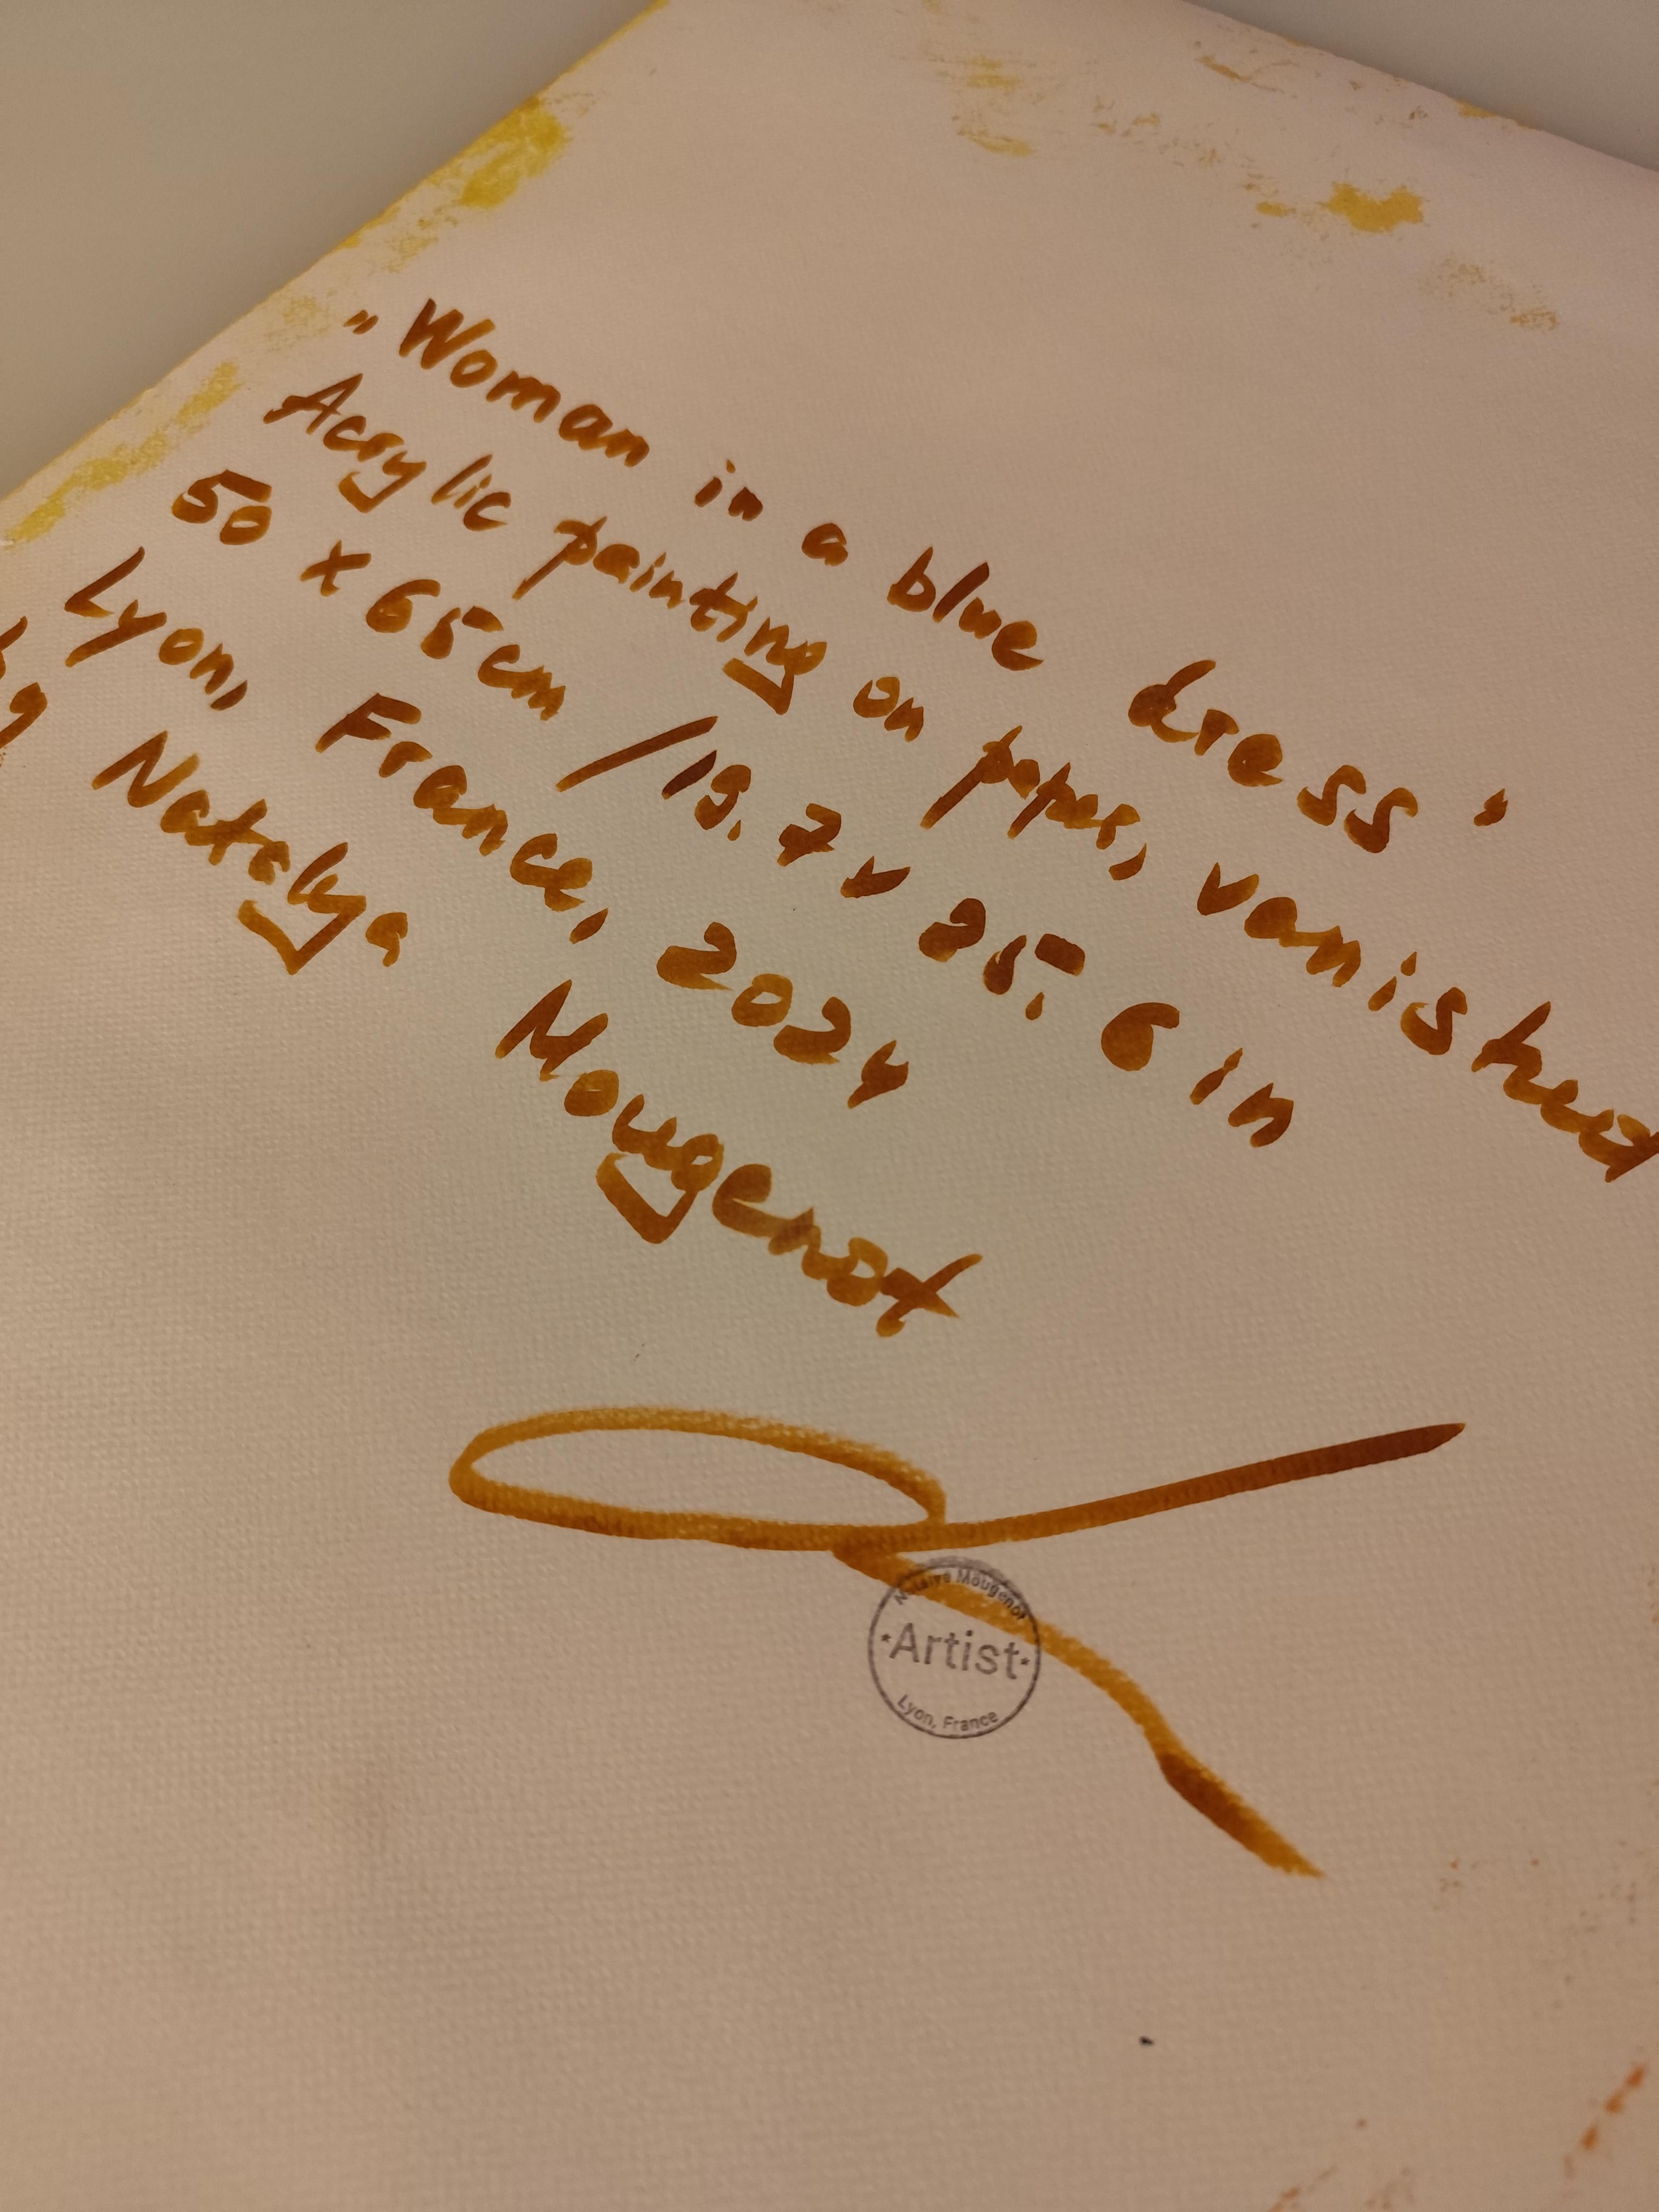 "Woman in a blue dress"
Acrylic painting on paper, vanished
50 x 65 cm / 19.7 x 25.6 in
Lyon, France, 2024
by Natalya Mougenot
Mougenot
·Artist·
Lyon, France